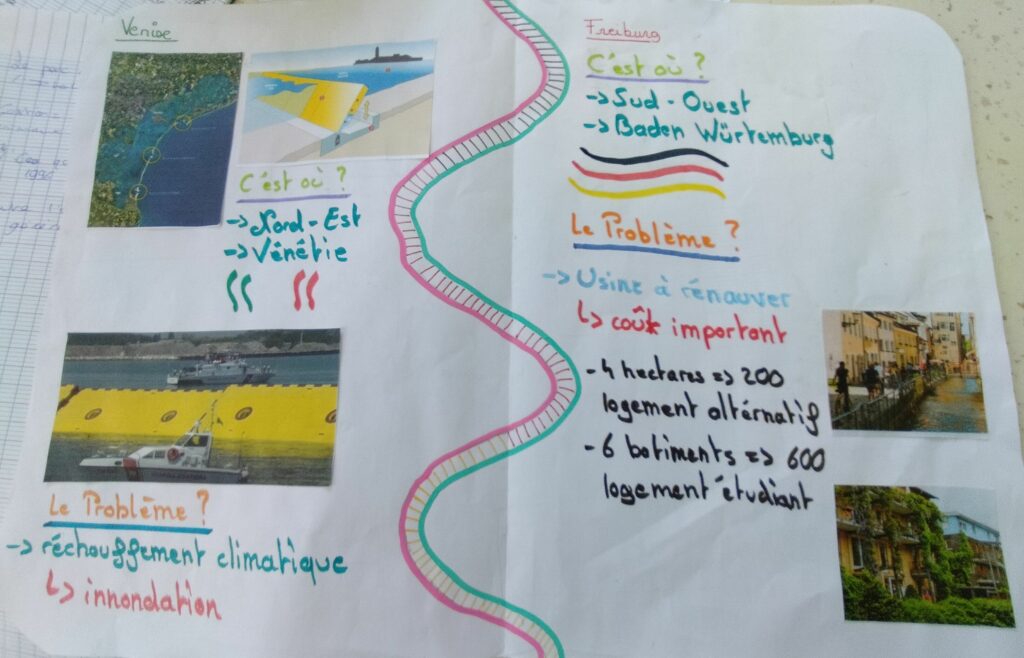 Venise
C'est où ?
-> Nord-Est
-> Vénétie
Le Problème ?
-> réchouffement climatique
↳ innondation
Freiburg
C'est où ?
-> Sud-Ouest
-> Baden Würtemburg
Le Problème ?
-> Usine à rénauver
↳ coût important
- 4 hectares => 200
logement altérnatif
- 6 batiments => 600
logement étudiant